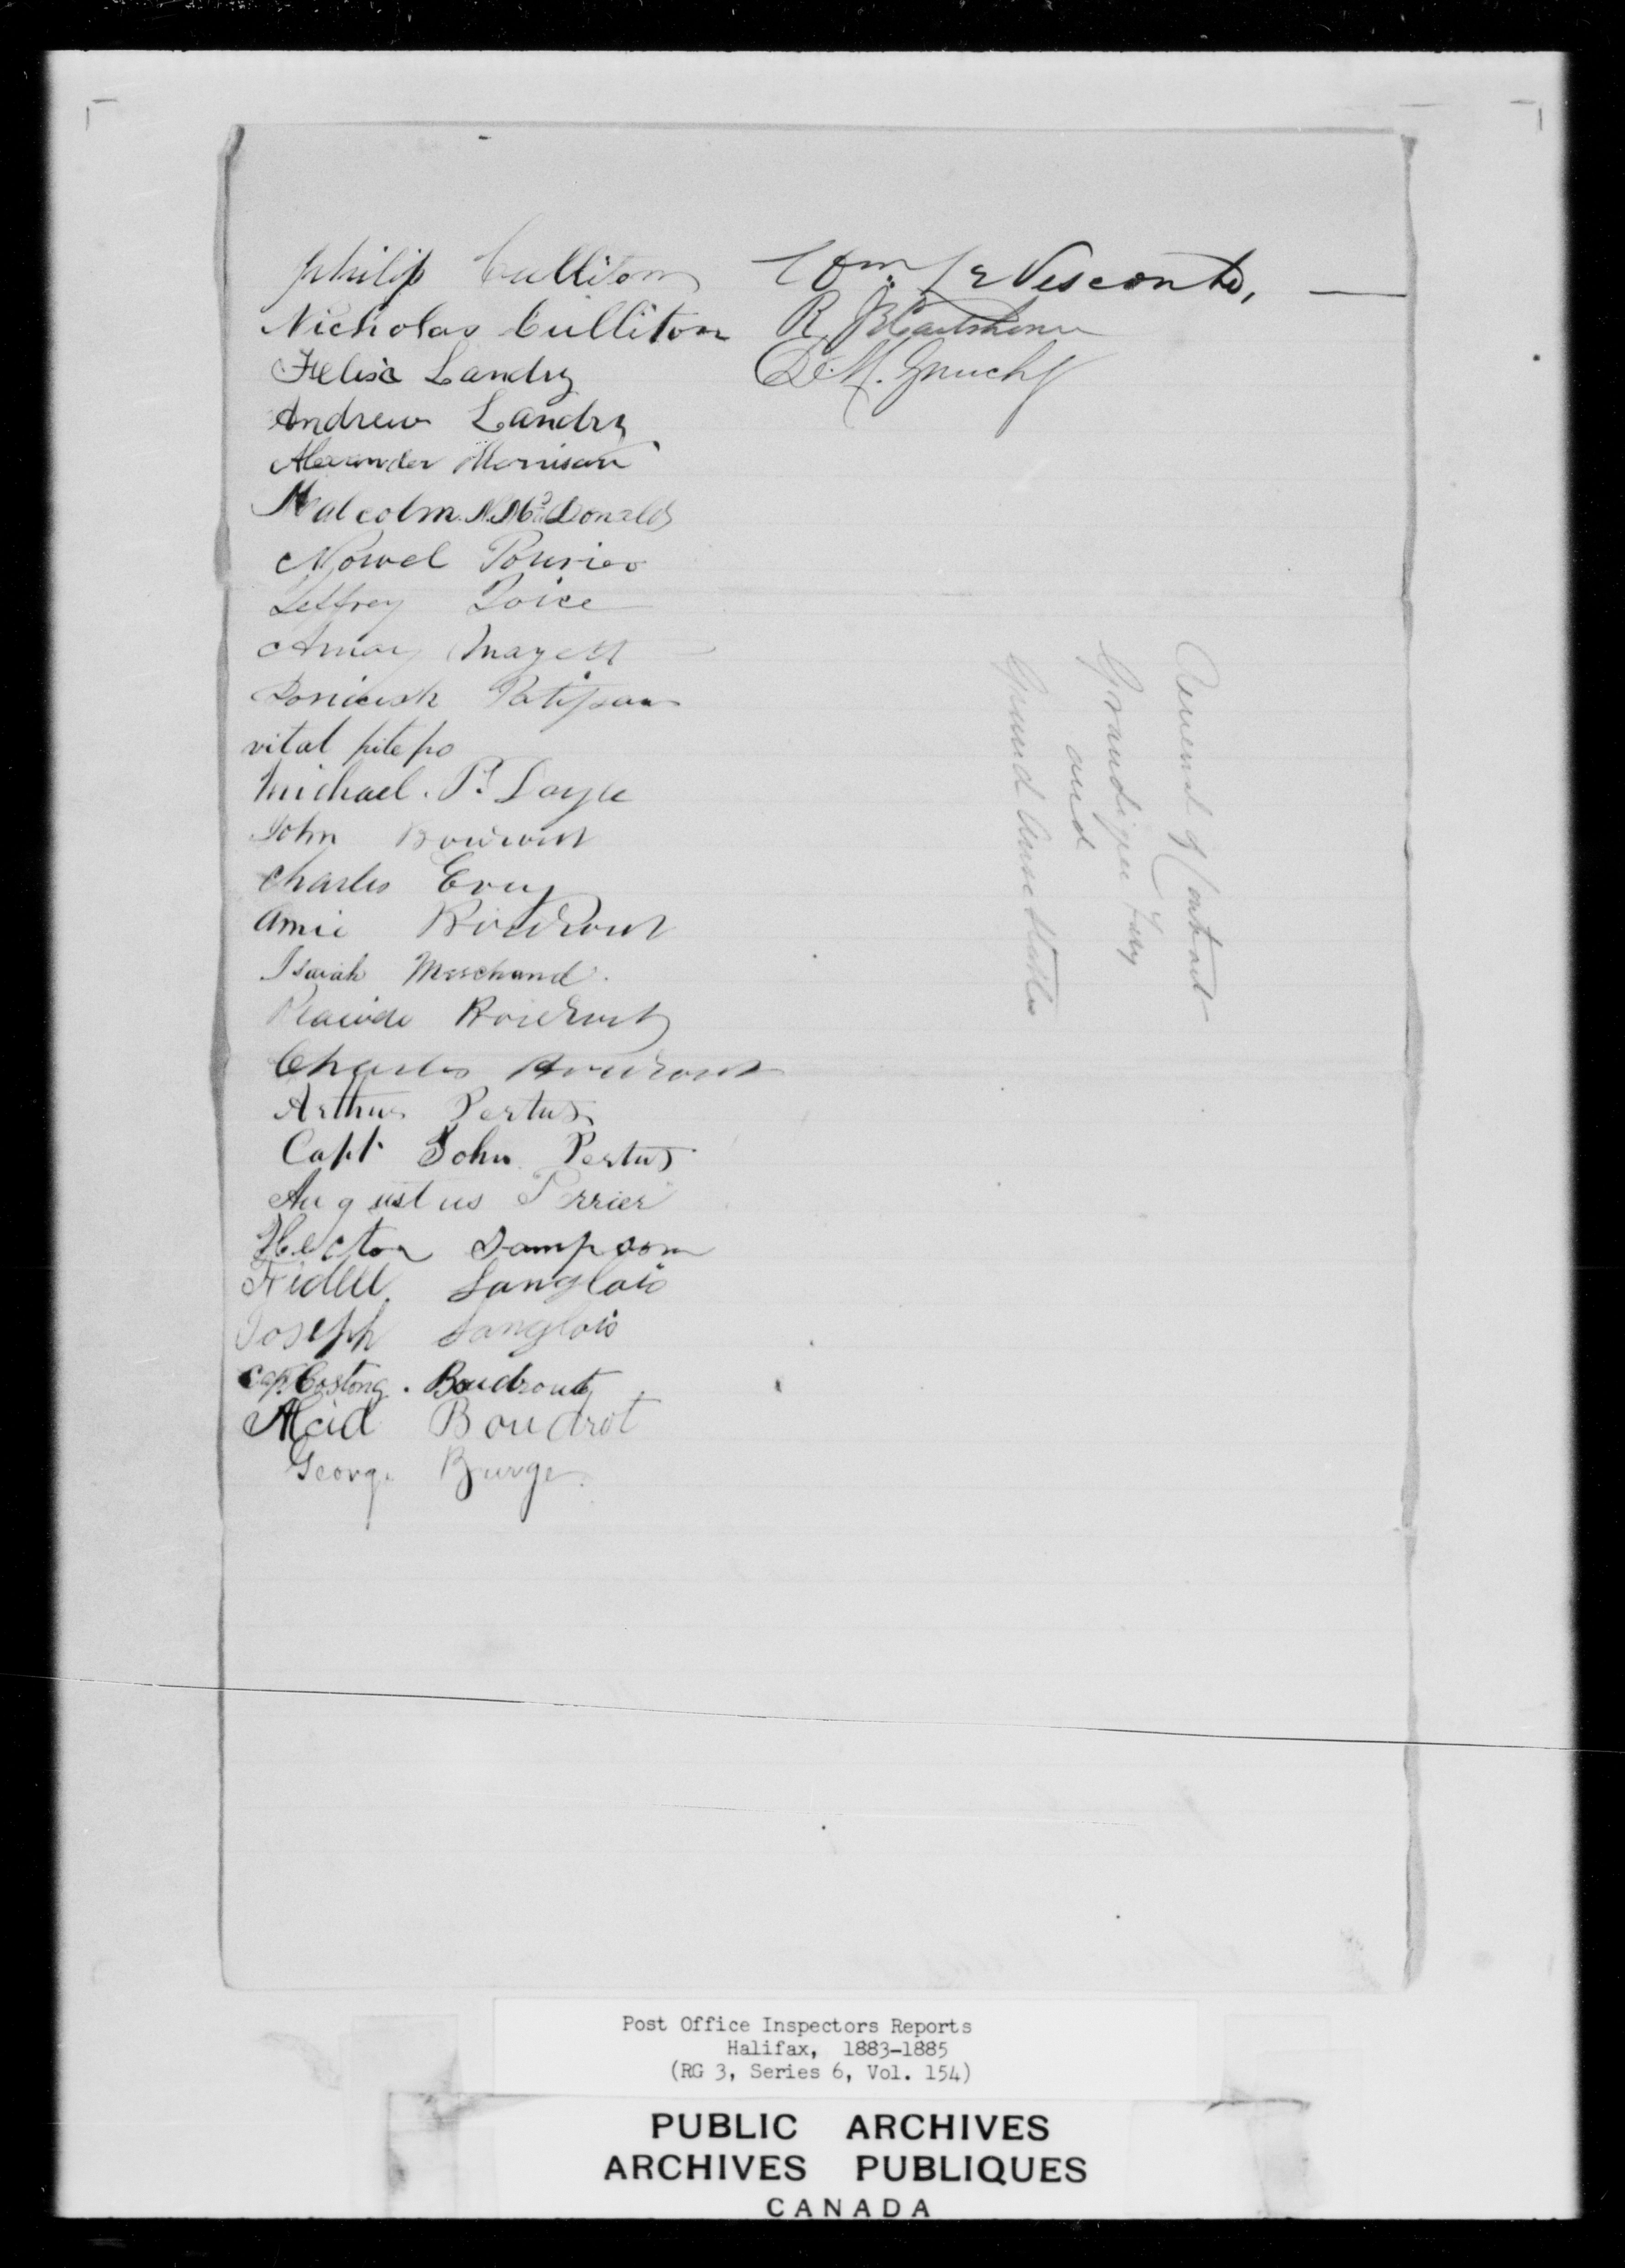 philip Culliton
Nicholas Culliton
Felix Landry
Andrew Landry
Alexander Morrison
Malcolm N. McDonald
Nowel Pourier
Jeffrey Joice
Amay
vital pitepo
Michael. P. Doyle
John Boudrout
Charles Evuy
Amie Boudrout
Isaiah Merchand.
Placide Boudrout
Charles Boudrout
Arthur Pertus
Capt. John Pertus
Augustus Perrier
Hector Sampson
Fidell. Langlois
Joseph Langlois
Cap. Costong. Boudrout
Alcid Boudrot
George Burge.
Wm. Le Vesconte,
R
De. M. Gruchy
Renewal of Contract
Grandigue Ferry
and
Grand Anse Station
Post Office Inspectors Reports
Halifax, 1883-1885
(RG 3, Series 6, Vol. 154)
PUBLIC ARCHIVES
ARCHIVES PUBLIQUES
CANADA